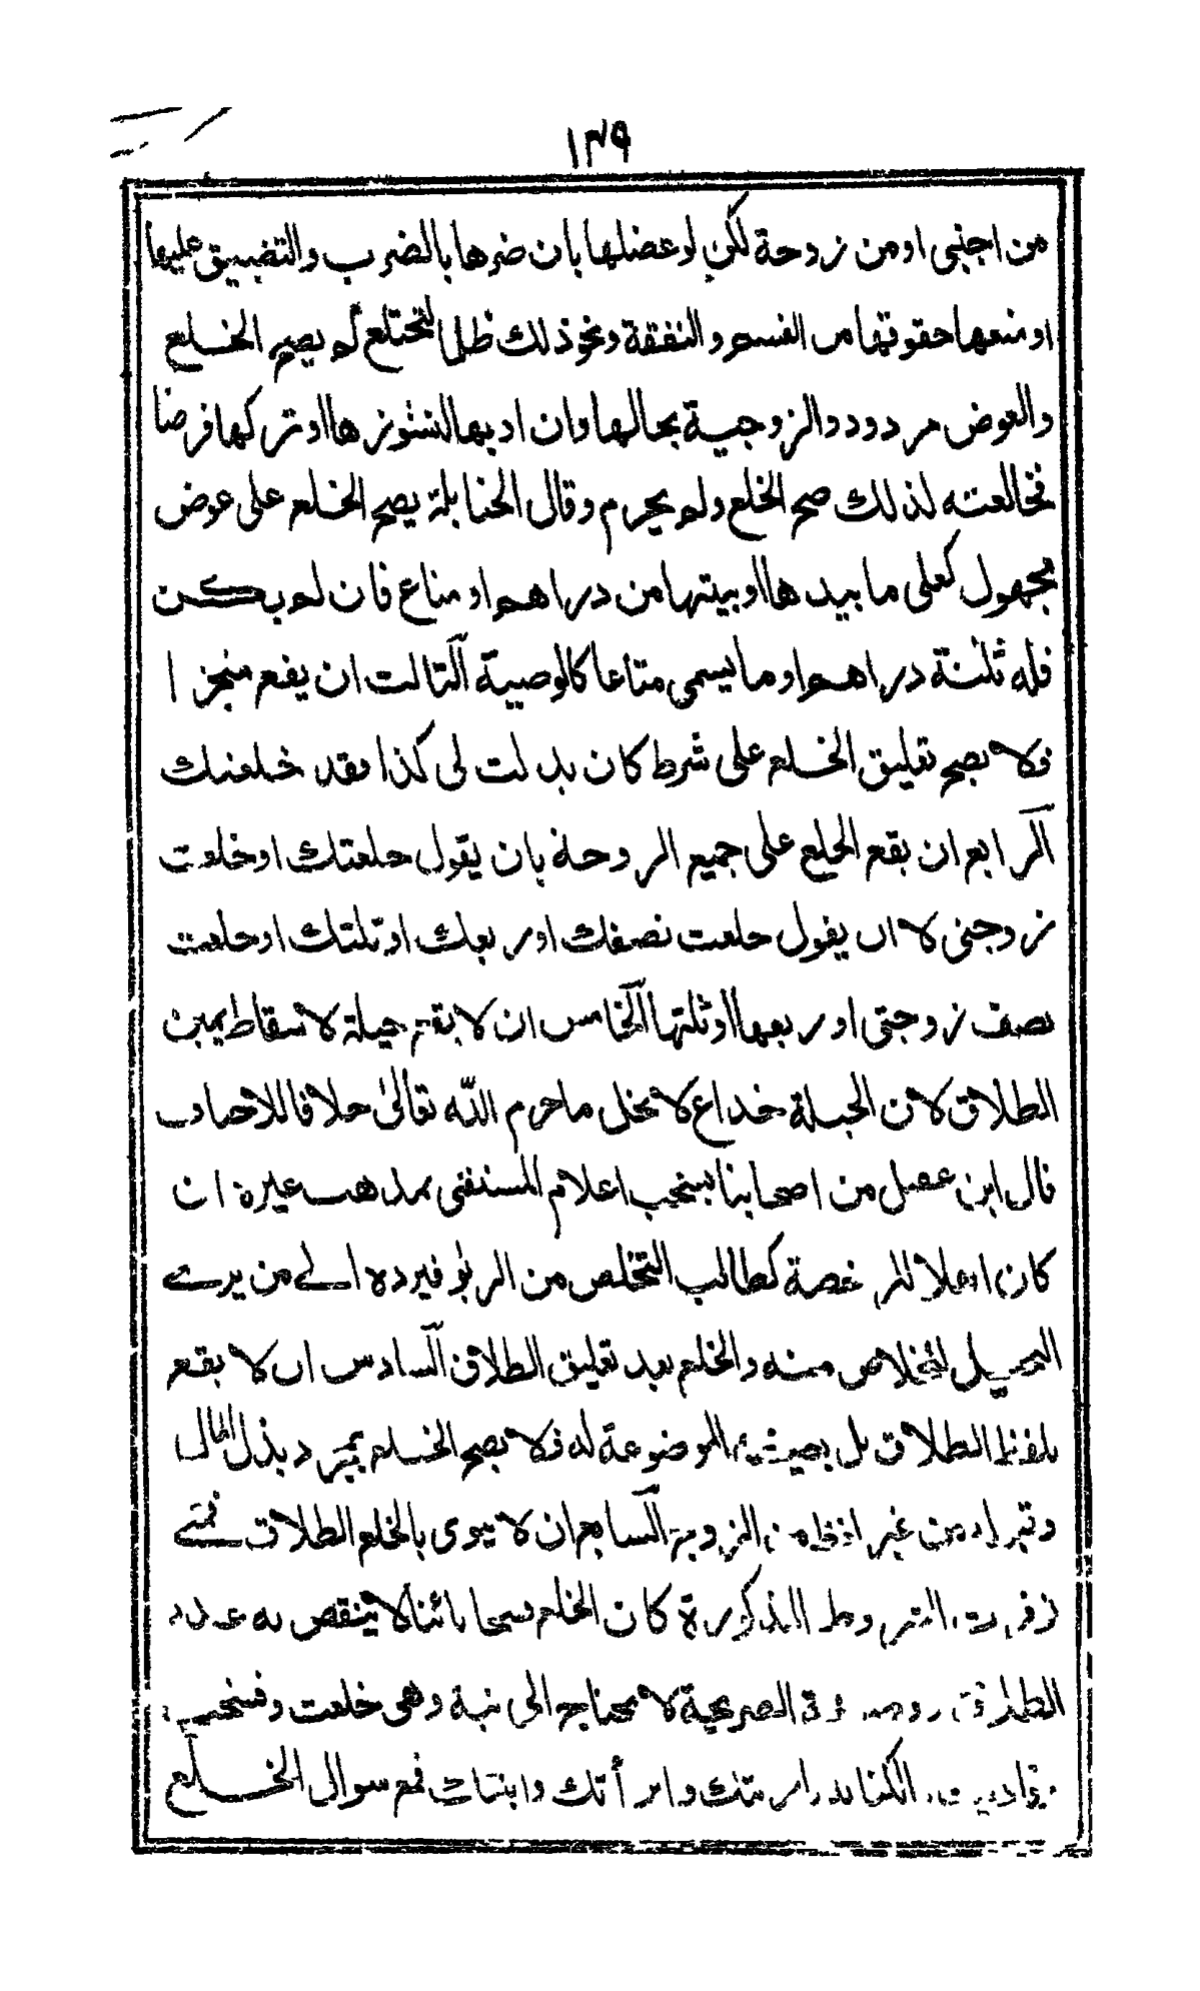 ١٣٩
من اجنبى او من زوجة لكن لو عضلها بان ضربها بالضرب والتضييق عليها
او منعها حقوقها من القسم والنفقة ونحو ذلك ظلما لتختلع لم يصح الخلع
والعوض مردود والزوجية بحالها وان ادبها لنشوزها او تركها فرضا
فخالعته لذلك صح الخلع ولم يحرم وقال الحنابلة يصح الخلع على عوض
مجهول كعلى ما بيدها او بيتها من دراهم او متاع فان لم يكن
فله ثلثة دراهم او ما يسمى متاعا كالوصية الثالث ان يقع منجزا
فلا يصح تعليق الخلع على شرط كان بدلت لى كذا فقد خلعتك
الرابع ان يقع الخلع على جميع الزوجة بان يقول خلعتك او خلعت
زوجتى لا ان يقول خلعت نصفك او ربعك او ثلثك او خلعت
نصف زوجتى او ربعها او ثلثها الخامس ان لا يقع حيلة لاسقاط يمين
الطلاق لان الحيلة خداع لا تحل ما حرم الله تعالى خلافا للاصحاب
قال ابن عقيل من اصحابنا يستحب اعلام المستفتى بمذهب غيره ان
كان اهلا للرخصة كطالب التخلص من الربو فيرده الے من يرے
التحيل للخلاص منه والخلع بعد تعليق الطلاق السادس ان لا يقع
بلفظ الطلاق بل بصيغته الموضوعة له فلا يصح الخلع بمجرد بذل المال
وقبوله من غير لفظ من الزوج السابع ان لا ينوى بالخلع الطلاق فمتے
توفرت الشروط المذكورة كان الخلع فسخا بائنا لا ينقص به عدد
الطلاق الصريحة لا تحتاج الى نية وهى خلعت وفسخت
الكناية باريتك وابرأتك وابنتك فمع سوال الخلع